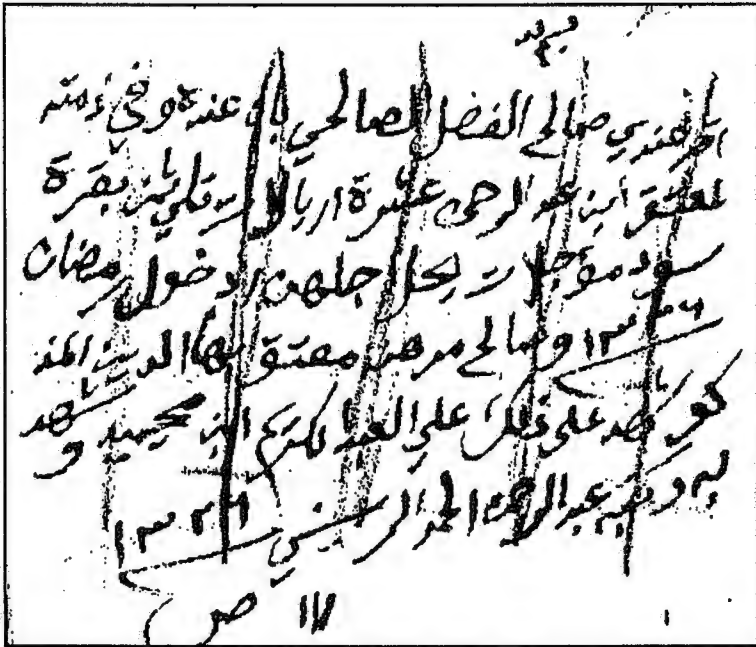 أقر عندي صالح الفضل الصالحي بأن عنده وفي ذمته
لمعتق ابن عبد الرحمن عشرة اريالات ثمن بقرة
سودا مؤجلات يحل اجلهن دخول رمضان
١٣٣٦ وصالح مرهن معتق بهالدين المذ
كور شهد على ذلك علي العبد الكريم ابن محيميد و
به وكتبه عبد الرحمن الحمد ١٣٣٦
١٧ ص